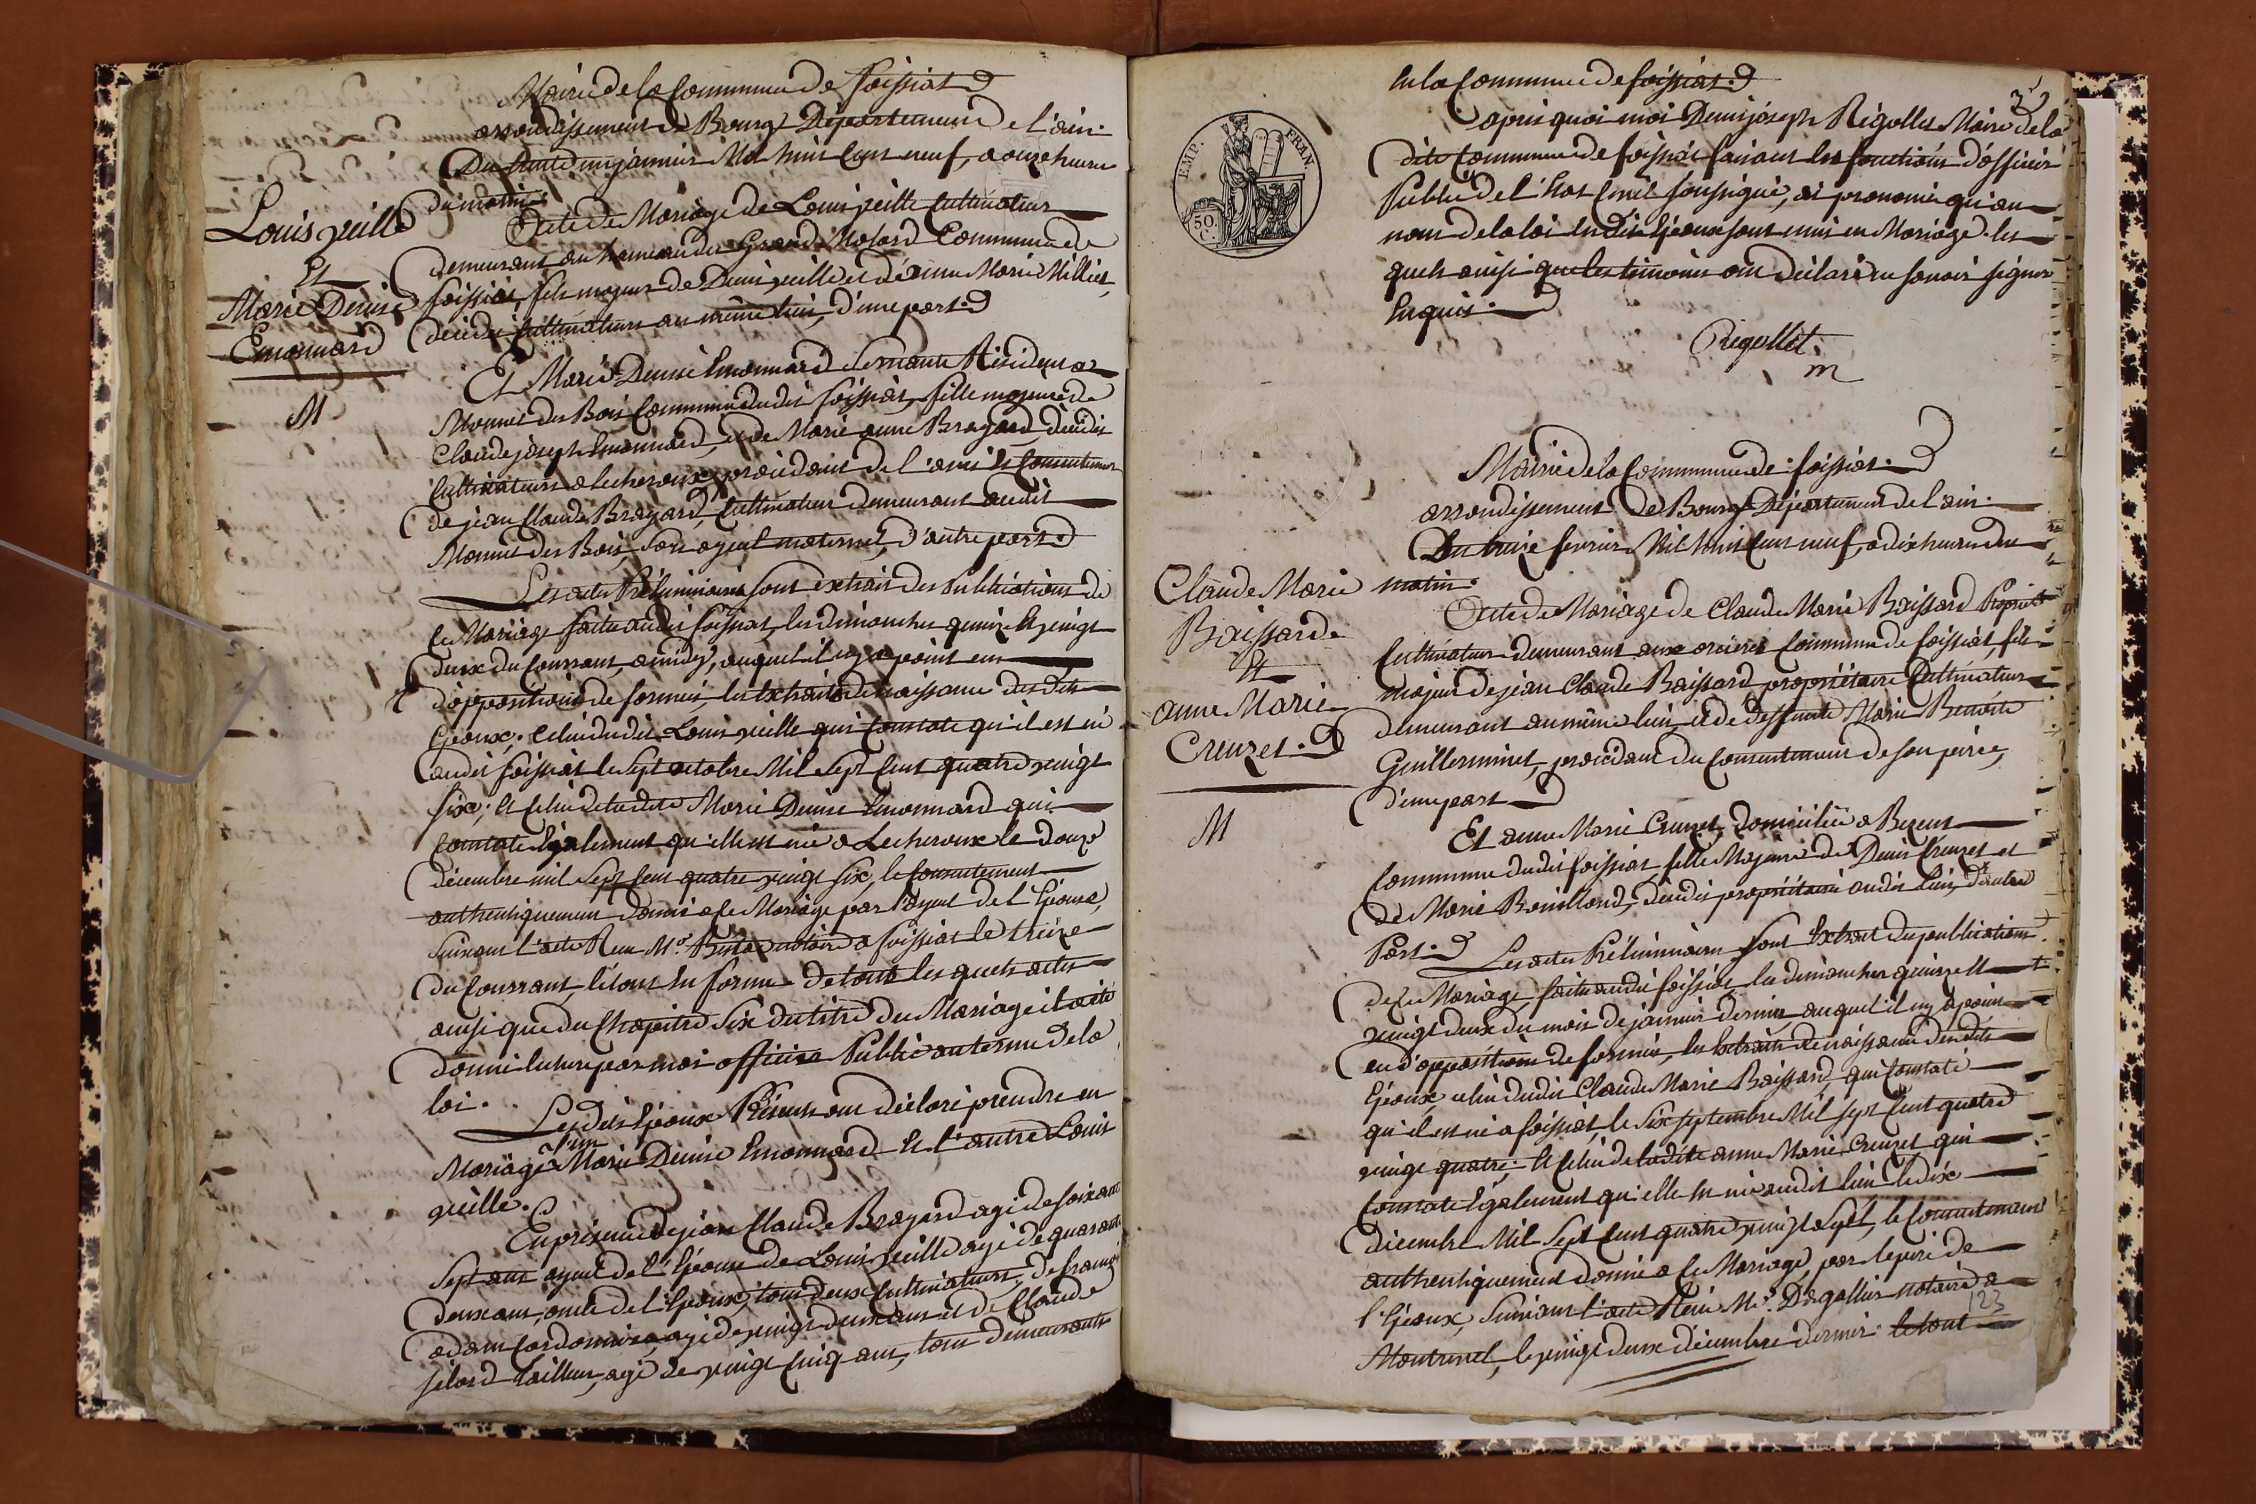 Mairie de la Commune de foissiat
arrondissement de Bourg Département de l'ain.
Du trente un janvier Mil huit Cent neuf, a onze heures
du matin
Louis veille
Et
Marie Denise
Emonnard
M
Acte de Mariage de Louis veille Cultivateur
demeurant au hameau du Grand Molard Commune de
foissiat, fils majeur de Denis veille et de anne Marie Millet,
décédés Cultivateurs au même lieu, d'une part.
Et Marie Denise Emonnard Servante Résidente a
Monnet des Bois Commune dudit foissiat, fille mineure de
Claude joseph Emonnard, et de Marie anne Brayard, décédés
Cultivateurs a lescheroux, procédant de l'avis et Consentement
de jean Claude Brayard, Cultivateur demeurant audit
Monnet des Bois, son ayeul maternel, d'autre part.
Les actes Préliminaires sont extrait des Publications de
Ce Mariage faite audit foissiat, les dimanches quinze et vingt
deux du Courrant, a midy, auquel il n'y a point eu
d'opposition de formée, les Extraits de naissance desdits
Epoux, Celui dudit Louis veille qui Constate qu'il est né
audit foissiat le sept octobre Mil Sept Cent quatre vingt
six; et Celui de ladite Marie Denise Emonnard qui
Constate Egalement qu'elle est née a Lescheroux le douze
décembre mil Sept Cent quatre vingt six, le Consentement
authentiquement donné a Ce Mariage par l'ayeul de l'Epouse,
suivant l'acte Reçu Me. notaire a foissiat le treize
du Courrant, le tout En forme de tous lesquels actes
ainsi que du Chapitre Six du titre du Mariage il a été
donné lecture par moi officier Public au terme de la
loi.
Lesdits Epoux Présents ont déclaré prendre en
Mariage l'un Marie Denise Emonnard Et l'autre Louis
veille.
En présence de jean Claude Brayard agé de soixante
Sept ans ayeul de l'Epouse de Louis veille agé de quarante
deux ans, oncle de l'Epoux, tous deux Cultivateurs, de françois
adam Cordonnier, agé de vingt deux ans et de Claude
tailleur, agé de vingt Cinq ans, tous demeurants
EMP. FRAN.
50
En la Commune de foissiat.
après quoi moi Denis joseph Rigollet Maire de la
dite Commune de foissiat faisant les fonctions d'officier
Public de l'Etat Civil soussigné, ai prononcé qu'au
nom de la loi lesdits Epoux sont unis en Mariage. les
quels ainsi que les témoins ont déclaré ne savoir signer
Enquis.
Rigollet
m
Mairie de la Commune de foissiat.
arrondissement de Bourg Département de l'ain.
Du treize fevrier Mil huit Cent neuf, a dix heures du
matin.
Claude Marie
Baissard
Et
anne Marie
Creuzet.
M
Acte de Mariage de Claude Marie Baissard Propriet
Cultivateur demeurant aux Commune de foissiat, fils
majeur de jean Claude Baissard propriétaire Cultivateur
demeurant au même lieu, et de deffunte Marie Benoite
Guillerminet, procédant du Consentement de son père,
d'une part
Et anne Marie Creuzet, domiciliée a Bezeut
Commune dudit foissiat fille Majeure de Denis Creuzet et
de Marie Bouilloud, décédés propriétaires audit lieu, d'autre
Part.
Les actes Préliminaires sont Extrait des publications
de Ce Mariage faite audit foissiat, les dimanches quinze et
vingt deux du mois de janvier dernier, auquel il n'y a point
eu d'opposition de formée, les Extraits de naissance desdits
Epoux, celui dudit Claude Marie Baissard, qui Constate
qu'il est né a foissiat, le six septembre Mil sept Cent quatre
vingt quatre; et Celui de ladite anne Marie Creuzet qui
Constate Egalement qu'elle est née audit lieu le dix
décembre Mil Sept Cent quatre vingt sept, le Consentement
authentiquement donné a Ce Mariage, par le père de
l'Epoux, suivant l'acte Reçu Me. Dagallier notaire a
Montrevel, le vingt deux décembre dernier. le tout
123